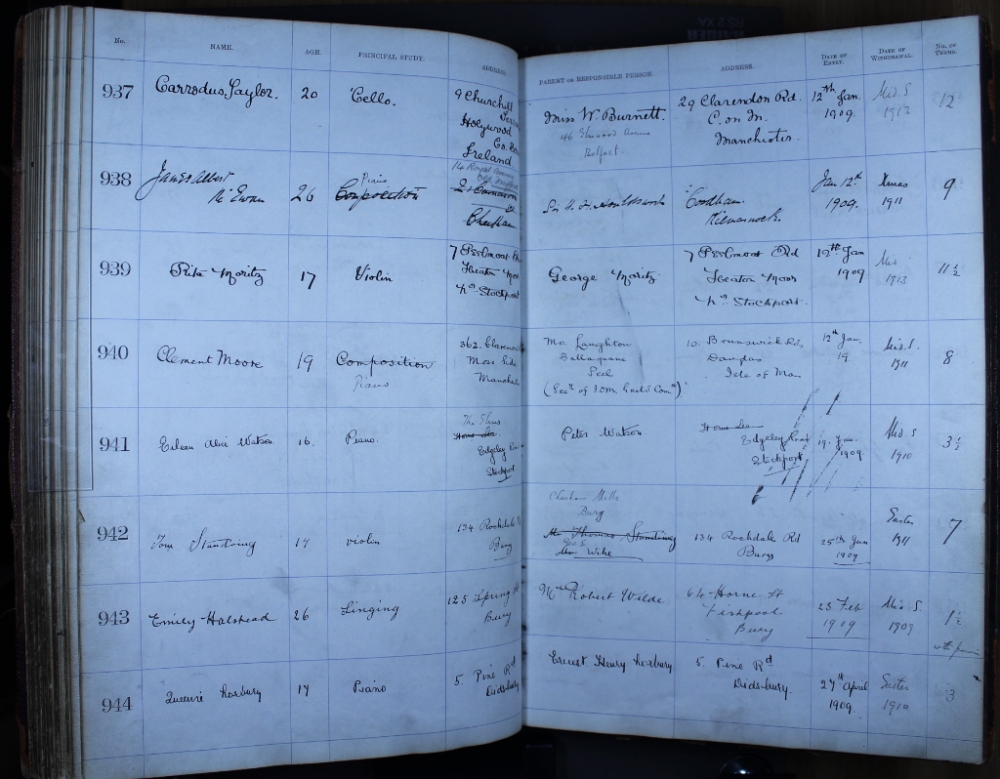 No.
NAME.
AGE.
PRINCIPAL STUDY.
ADDRESS
PARENT OR RESPONSIBLE PERSON.
ADDRESS.
DATE OF
ENTRY.
DATE OF
WITHDRAWAL.
NO. OF
TERMS.
937
Carrodus Taylor.
20
'Cello.
9 Churchill
Holywood
Co.
Ireland
Miss W. Burnett.
46
Belfast.
29 Clarendon Rd.
C. on M.
Manchester.
12th Jan.
1909.
Mid. S
1912
12
938
James Albert
McEwan
26
Piano
Composition
14 Royal
Coodham.
Kilmarnock.
Jan 12th
1909.
Xmas
1911
9
939
Rita Moritz
17
Violin
7
Heaton Moor
Nr. Stockport
George Moritz
7
Heaton Moor
Nr. Stockport.
12th Jan
1909
Mid
1913
11 1/2
940
Clement Moore
19
Composition
Piano
362.
Moss Side
Mr. Laughton
Ballaquane
Peel
10. Brunswick Rd.
Douglas
Isle of Man
12th Jan.
19
Mid. S.
1911
8
941
Eileen Alice Watson
16.
Piano.
The Elms
Edgeley Road
Stockport
Peter Watson
Edgeley Road
Stockport
19. Jan.
1909.
Mid. S
1910
3 1/2
942
Tom Standring
17
Violin
134 Rochdale
Bury
Chesham Mills
Bury
Thomas Standring
134 Rochdale Rd
Bury
25th Jan
1909
Easter
1911
7
943
Emily Halstead
26
Singing
125 Spring
Bury
Robert Wilde
64 Horne St
Fishpool
Bury
23 Feb
1909
Mid. S.
1909
1 1/2
944
Queenie Loxbury
17
Piano
5. Pine Rd
Didsbury
Ernest Henry Loxbury
5. Pine Rd
Didsbury.
27th April
1909.
Easter
1910
3